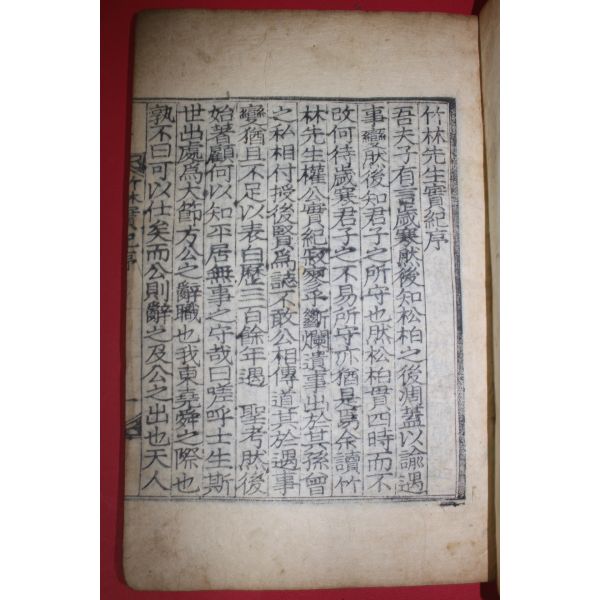 竹林先生實紀序
吾夫子有言歲寒然後知松柏之後凋蓋以諭遇
事變然後知君子之所守也然松柏貫四時而不
改何待歲寒君子之不易所守亦猶是焉余讀竹
林先生權公實紀寂寥乎斷爛遺事出於其孫曾
之私相付授後賢爲誌不敢公相傳道其於遇事
變猶且不足以表白歷三百餘年遇 聖考然後
始著顧何以知平居無事之守哉曰嗟呼士生斯
世出處爲大節方公之辭職也我東堯舜之際也
孰不曰可以仕矣而公則辭之及公之出也天人
竹林實紀序
一